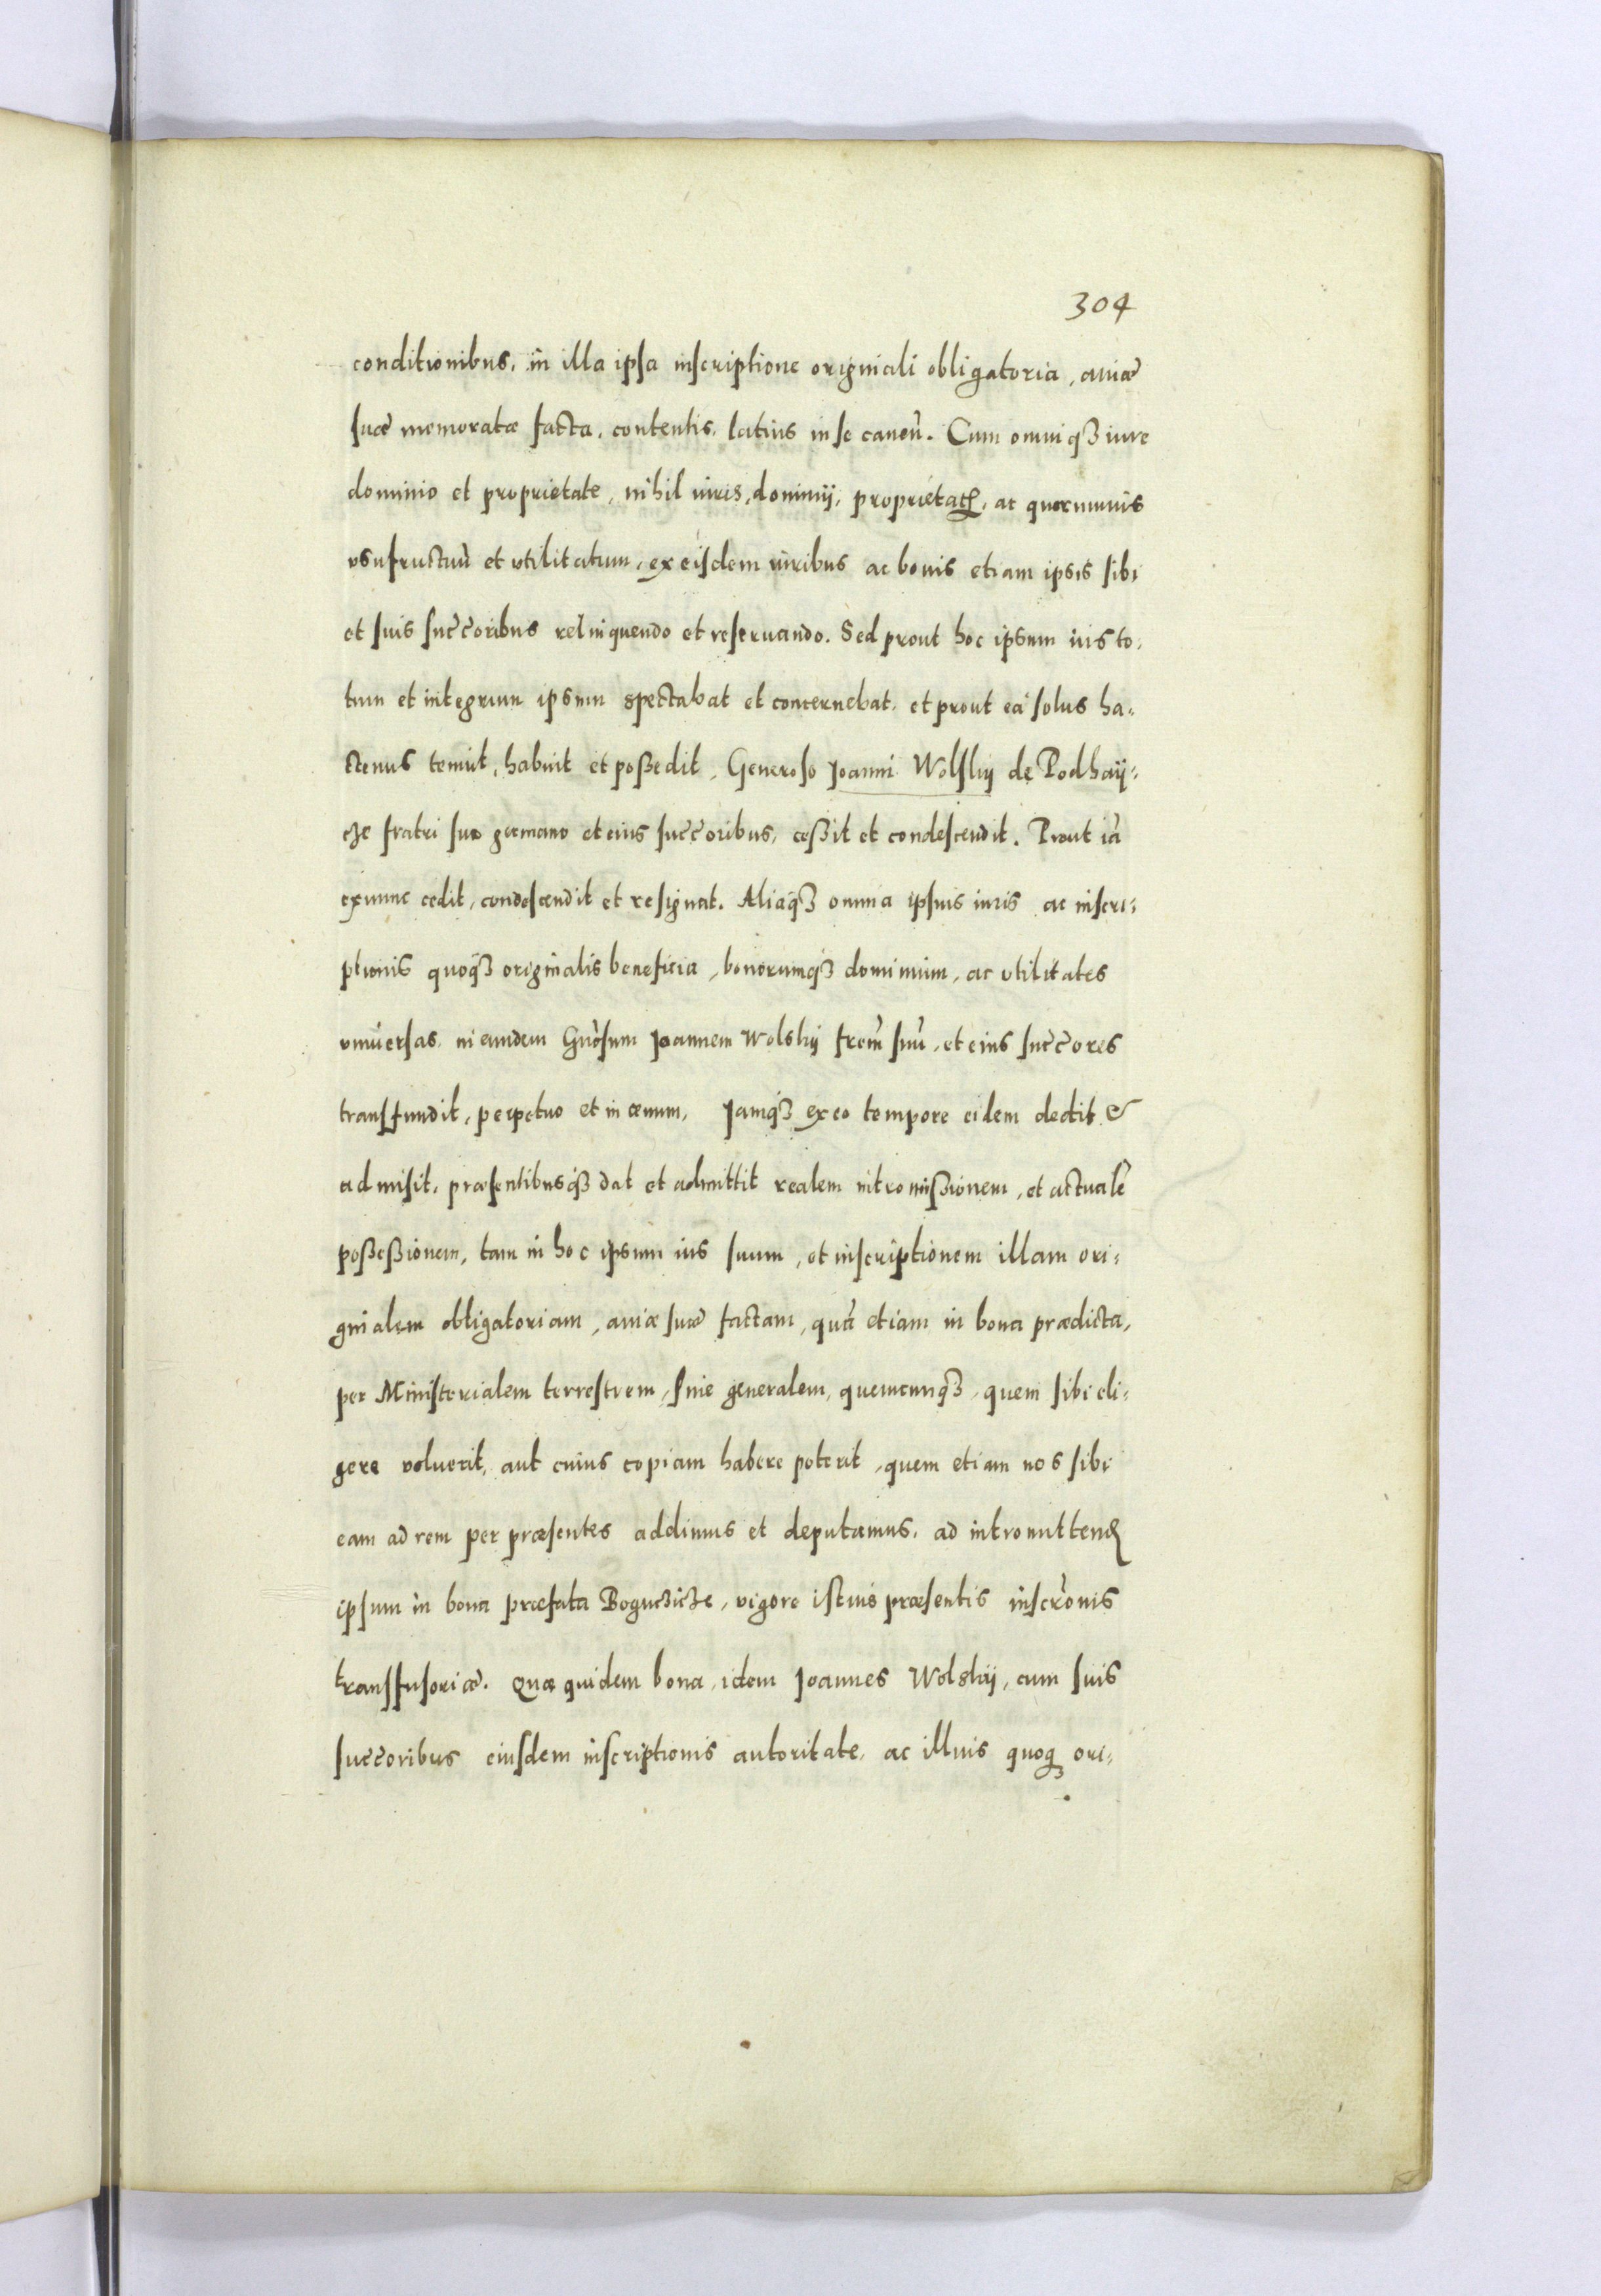 304
conditionibus, in illa ipsa inscriptione originali obligatoria, auiæ
suæ memoratæ facta, contentis, latius in se caneñ. Cum omniq́ꝫ iure
dominio et proprietate, nihil iuris, dominij, proprietatꝭ, ac quorumuis
vsufructuũ et vtilitatum, ex eisdem iuribus ac bonis etiam ipsis sibi
et suis succ̃oribus relinquendo et reseruando. Sed prout hoc ipsum ius to-
tum et integrum ipsum spectabat et concernebat, et prout eã solus ha-
ctenus tenuit, habuit et poßedit, Generoso Joanni Wolsky de Podhay-
cze fratri suo germano et eius succ̃oribus, ceßit et condescendit. Prout iã
exnunc cedit, condescendit et resignat. Aliaq́ꝫ omnia ipsius iuris ac inscri-
ptionis quoq́ꝫ originalis beneficia, bonorumq́ꝫ dominium, ac vtilitates
vniuersas, in eundem Gnõsum Joannem Wolsky frem̃ suũ, et eius succ̃ores
transfundit, perpetuo et in æuum, Jamq́ꝫ ex eo tempore eidem dedit &
admisit, præsentibusq́ꝫ dat et admittit realem intromißionem, et actualẽ
poßeßionem, tam in hoc ipsum ius suum, et inscriptionem illam ori-
ginalem obligatoriam, auiæ suæ factam, quã etiam in bona prædicta,
per Ministerialem terrestrem, siue generalem, quemcunq́ꝫ, quem sibi eli-
gere voluerit, aut cuius copiam habere poterit, quem etiam nos sibi
eam ad rem per præsentes addimus et deputamus, ad intromittendꝭ
ipsum in bona præfata Boguczicze, vigore istius præsentis inscrõnis
transfusoriæ. Quæ quidem bona, idem Joannes Wolsky, cum suis
succ̃oribus eiusdem inscriptionis autoritate, ac illius quoqꝫ ori-